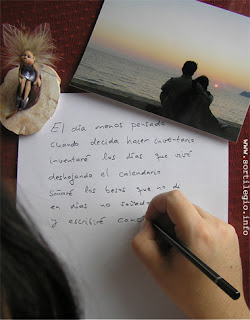 El día menos pensado
cuando decida hacer inventario
inventaré los días que viví
deshojando el calendario
Sumaré los besos que no di
en días no
y escribiré
www.sortilegio.info